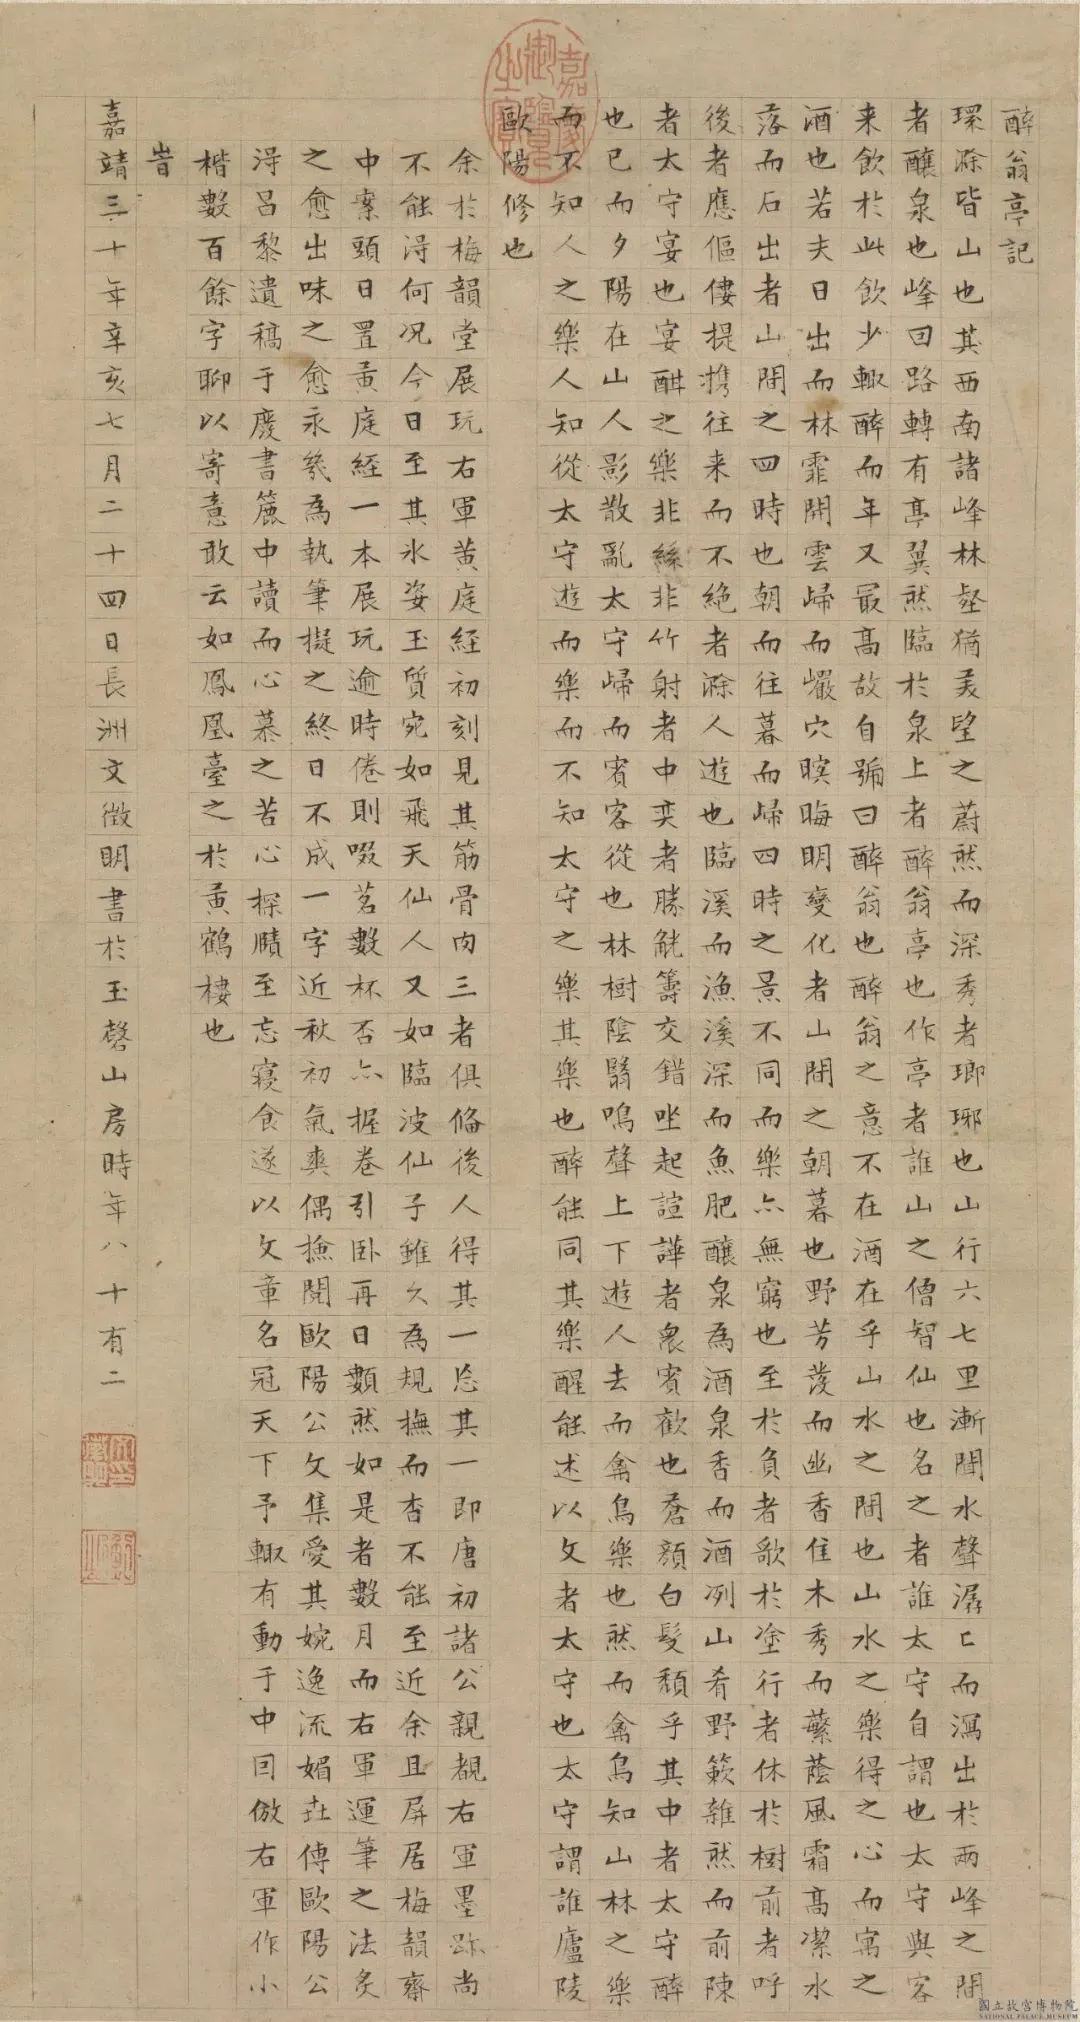 醉翁亭記
環滁皆山也其西南諸峰林壑猶美望之蔚然而深秀者瑯琊也山行六七里漸聞水聲潺〻而瀉出於兩峰之間
者釀泉也峰回路轉有亭翼然臨於泉上者醉翁亭也作亭者誰山之僧智仙也名之者誰太守自謂也太守與客
来飲於此飲少輒醉而年又最高故自號曰醉翁也醉翁之意不在酒在乎山水之間也山水之樂得之心而寓之
酒也若夫日出而林霏開雲歸而巖穴暝晦明變化者山間之朝暮也野芳發而幽香佳木秀而蘩蔭風霜高潔水
落而石出者山間之四時也朝而往暮而歸四時之景不同而樂亦無窮也至於負者歌於塗行者休於樹前者呼
後者應傴僂提攜往来而不絶者滁人遊也臨溪而漁溪深而魚肥釀泉為酒泉香而酒冽山肴野蔌雜然而前陳
者太守宴也宴酣之樂非絲非竹射者中奕者勝觥籌交錯坐起諠譁者衆賓歡也蒼顔白髮頹乎其中者太守醉
也已而夕陽在山人影散亂太守歸而賓客從也林樹陰翳鳴聲上下遊人去而禽鳥樂也然而禽鳥知山林之樂
而不知人之樂人知從太守遊而樂而不知太守之樂其樂也醉能同其樂醒能述以文者太守也太守謂誰廬陵
歐陽修也
余於梅韻堂展玩右軍黄庭經初刻見其筋骨肉三者俱俻後人得其一忘其一即唐初諸公親覩右軍墨跡尚
不能淂何况今日至其氷姿玉質宛如飛天仙人又如臨波仙子雖久為規撫而杳不能至近余且屏居梅韻齋
中案頭日置黄庭經一本展玩逾時倦則啜茗數杯否亦握卷引卧再日數然如是者數月而右軍運筆之法炙
之愈出味之愈永幾為執筆擬之終日不成一字近秋初氣爽偶撿閱歐陽公文集愛其婉逸流媚㐀傳歐陽公
淂呂黎遺稿于廢書簏中讀而心慕之苦心探賾至忘寝食遂以文章名冠天下予輙有動于中囙倣右軍作小
楷數百餘字聊以寄意敢云如鳳凰臺之於黄鶴樓也
旹
嘉靖三十年辛亥七月二十四日長洲文徴明書於玉磬山房時年八十有二
嘉慶御覽之寶
國立故宮博物院
NATIONAL PALACE MUSEUM